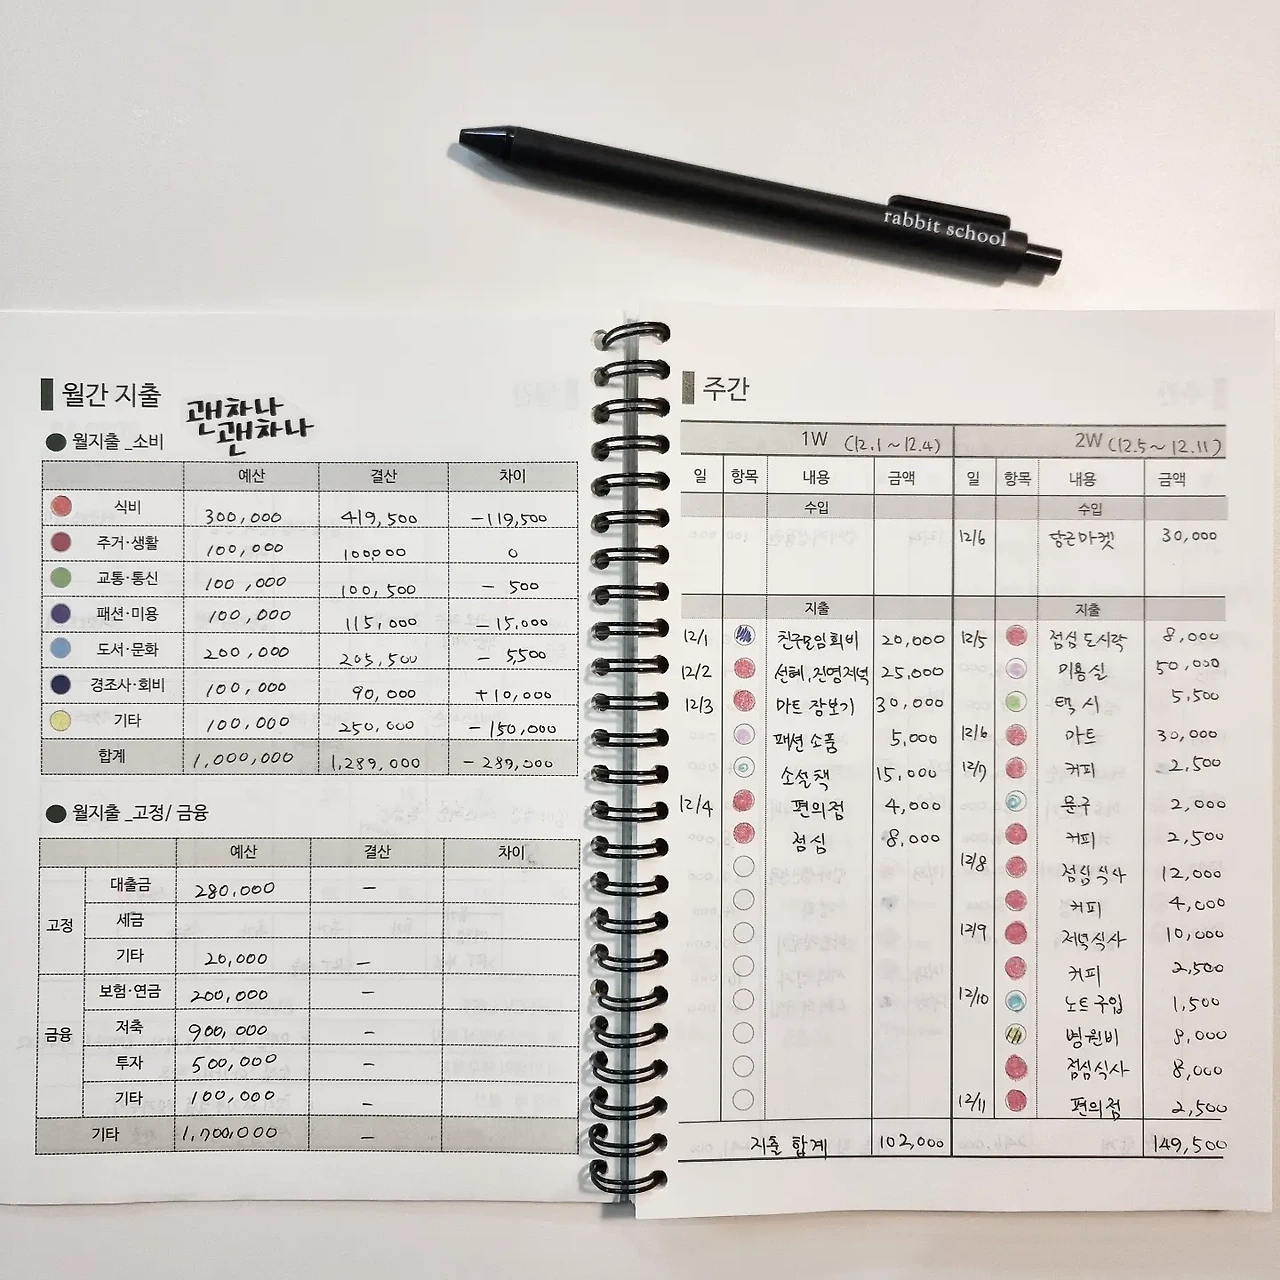 rabbit school
월간 지출
괜차나
괜차나
월지출 _소비
예산 결산 차이
식비 300,000 419,500 -119,500
주거·생활 100,000 100,000 0
교통·통신 100,000 100,500 - 500
패션·미용 100,000 115,000 -15,000
도서·문화 200,000 205,500 - 5,500
경조사·회비 100,000 90,000 +10,000
기타 100,000 250,000 -150,000
합계 1,000,000 1,289,000 - 289,000
월지출 _고정/ 금융
예산 결산 차이
고정
대출금 280,000 -
세금
기타 20,000 -
금융
보험·연금 200,000 -
저축 900,000 -
투자 500,000 -
기타 100,000 -
기타 1,700,000 -
주간
1W (12.1~12.4)
일 항목 내용 금액
수입
지출
12/1 친구모임회비 20,000
12/2 선혜,진영저녁 25,000
12/3 마트 장보기 30,000
패션 소품 5,000
소설책 15,000
12/4 편의점 4,000
점심 8,000
지출 합계 102,000
2W (12.5~12.11)
일 항목 내용 금액
수입
12/6 당근마켓 30,000
지출
12/5 점심 도시락 8,000
미용실 50,000
택시 5,500
12/6 마트 30,000
12/7 커피 2,500
문구 2,000
커피 2,500
12/8 점심식사 12,000
커피 4,000
12/9 저녁식사 10,000
커피 2,500
12/10 노트구입 1,500
병원비 9,000
점심식사 8,000
12/11 편의점 2,500
149,500